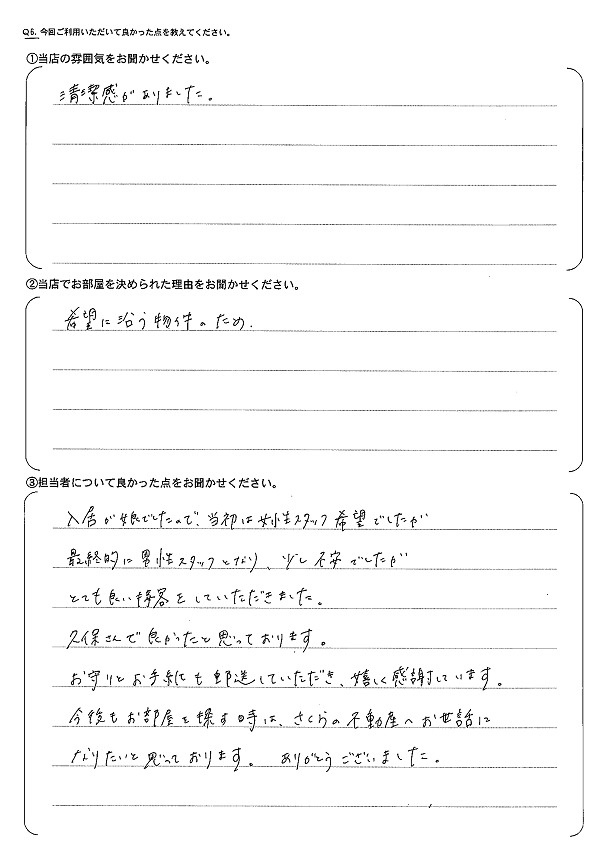 Q6. 今回ご利用いただいて良かった点を教えてください。
①当店の雰囲気をお聞かせください。
清潔感がありました。
②当店でお部屋を決められた理由をお聞かせください。
希望に沿う物件のため.
③担当者について良かった点をお聞かせください。
入居が娘でしたので、当初は女性スタッフ希望でしたが
最終的に男性スタッフとなり、少し不安でしたが
とても良い接客をしていただきました。
久保さんで良かったと思っております。
お守りとお手紙も郵送していただき、嬉しく感謝しています。
今後もお部屋を探す時は、さくらの不動産へお世話に
なりたいと思っております。 ありがとうございました。